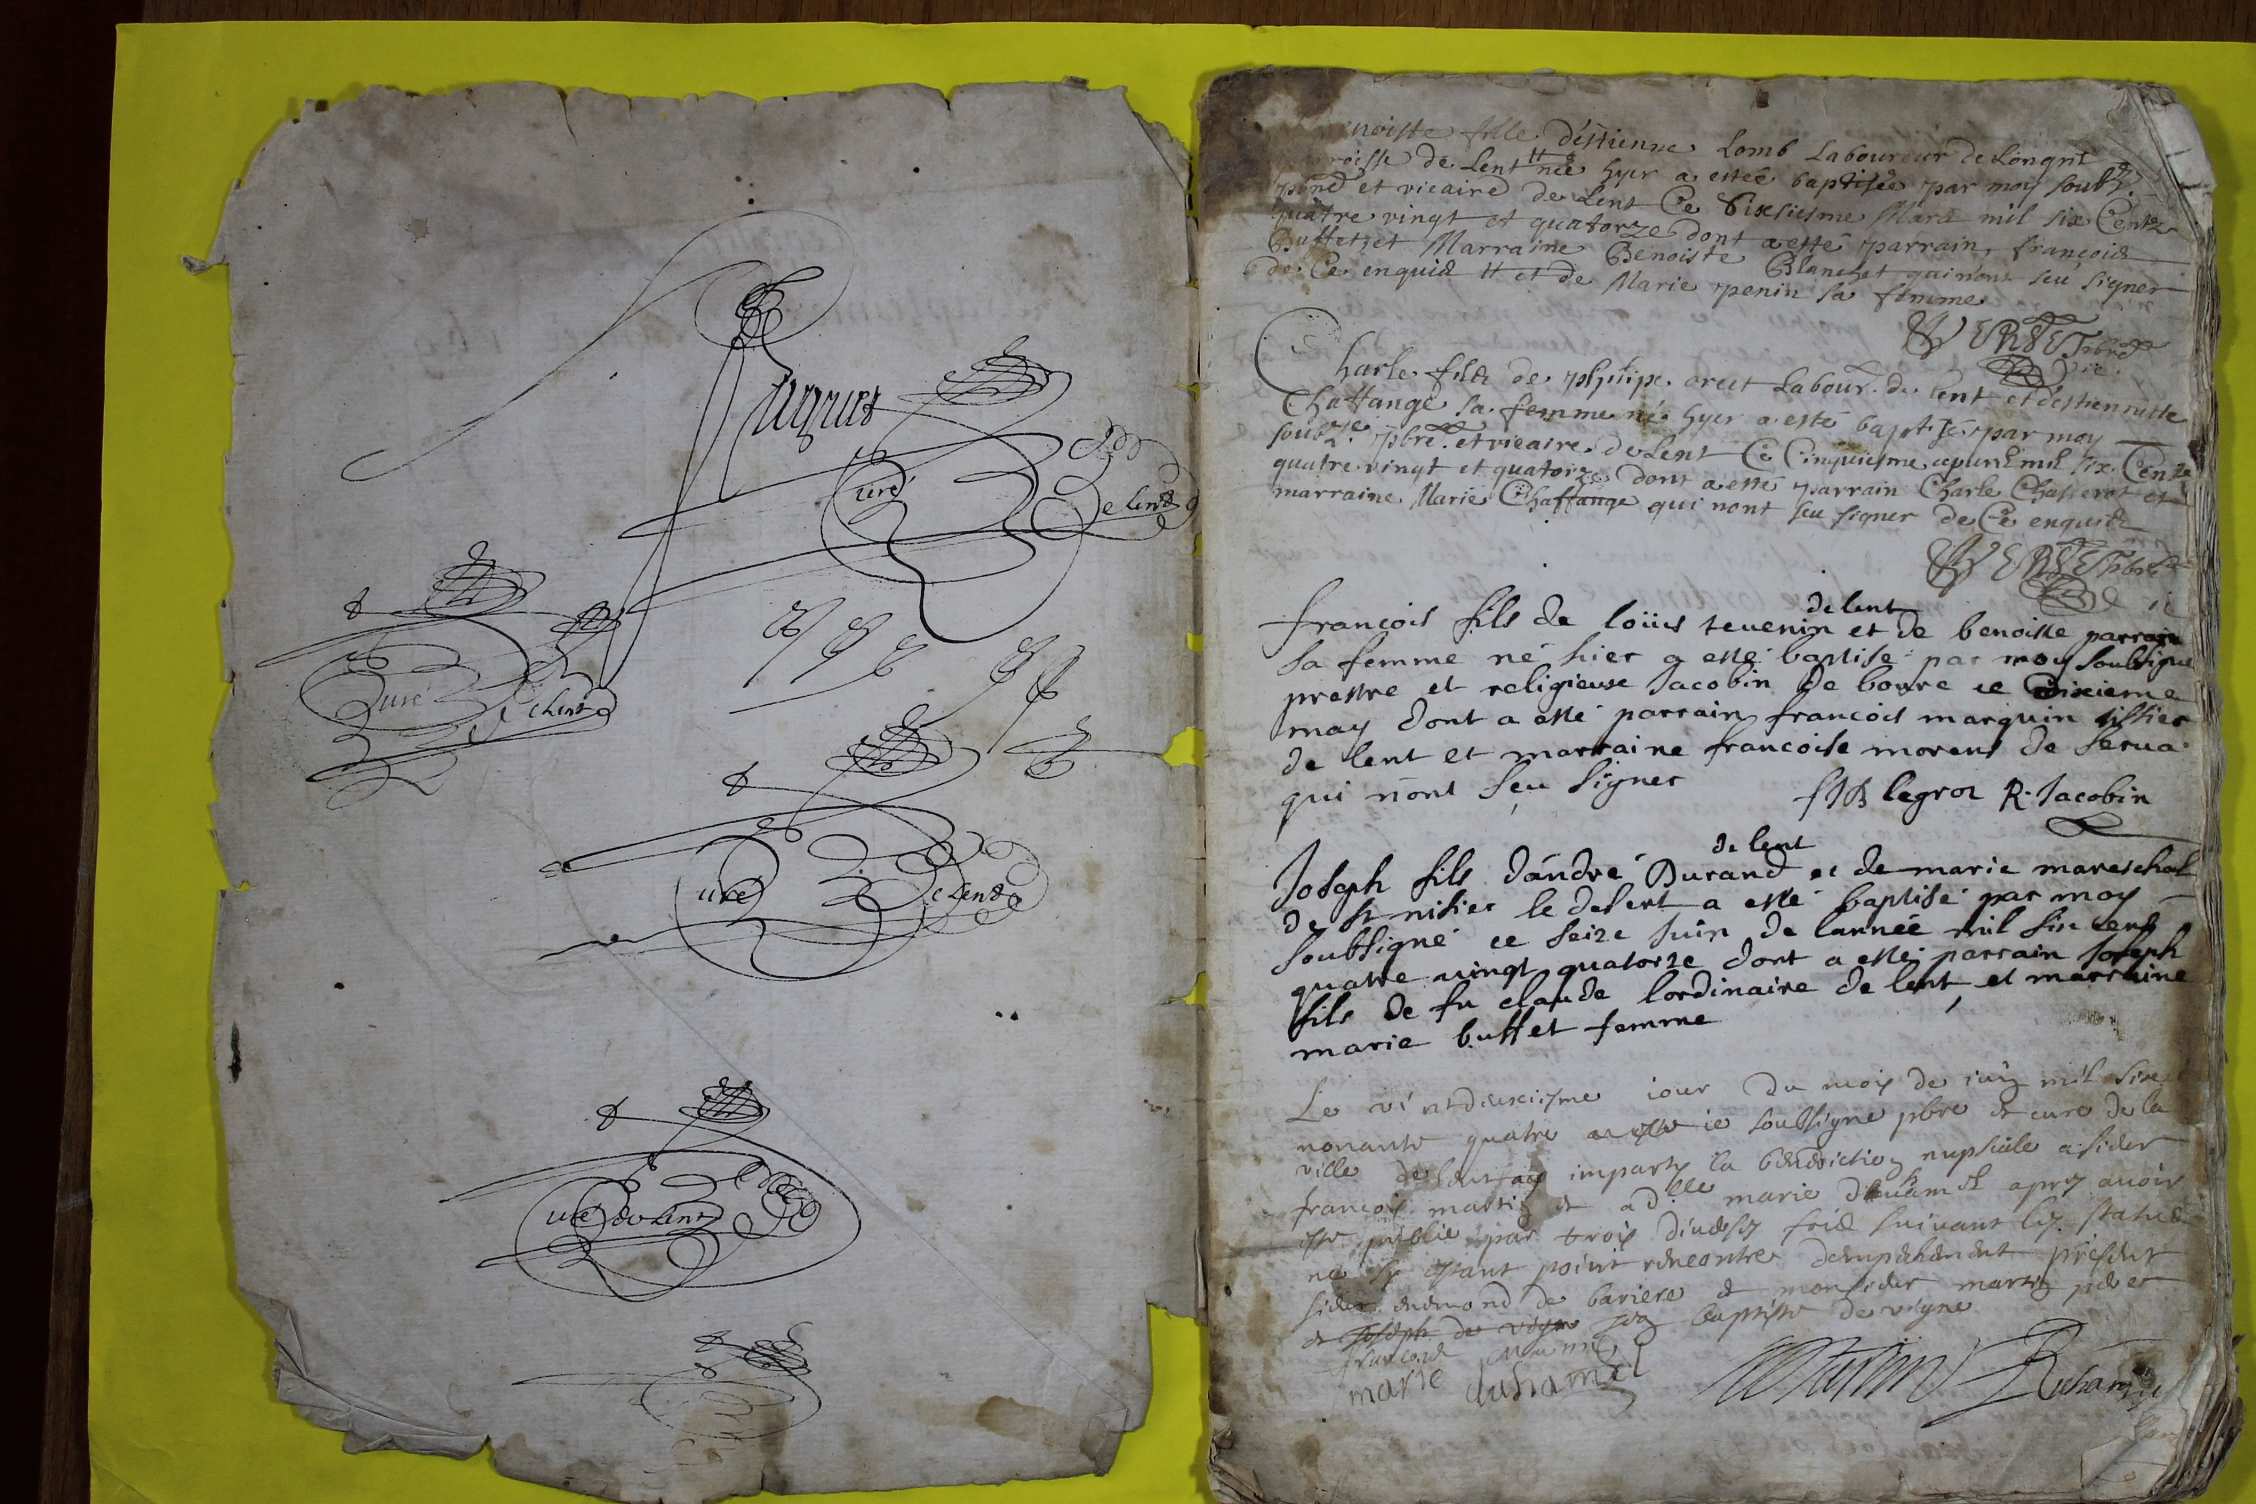 uré
e Lent
uré
e Lent
uré
e Lent
uré de Lent
enoiste fille d'estienne Lomb Laboureur de Longrit
paroisse de Lent # née hyer a estée baptisée par moy soubz.
pbre et vicaire de Lent Ce Sixsiesme Mars mil six Centz
quatre vingt et quatorze dont a esté parrain, françois
Buffet et Marraine Benoiste Blanchet qui n'ont sçu signer
de Ce enquis # et de Marie penin sa femme
VERSET pbre
vic.
Charle filz de phpipe Labour. de Lent et d'estiennette
Chaffange sa femme né hyer a esté baptisé par moy
soubz.é pbre et vicaire de Lent Ce Cinquiesme apuril mil six Centz
quatre vingt et quatorze dont a esté parrain Charle Chasserot et
marraine Marie Chaffange qui nont sçu signer de Ce enquis
VERSET pbre
vic
de lent
francois fils de loüis teuenin et de benoiste parrain
sa femme né hier a esté baptise par moy soubsigne
prestre et religieuse Jacobin de bourc ce dixieme
may dont a esté parrain francois marquin tissier
de lent et marraine francoise morens de serua
qui n'ont sçu signer
legros R. Jacobin
de lent
Joseph fils d'andré Durand et de marie mareschal
de st nisier le desert a esté baptisé par moy
soubsigné ce seize juin de l'année mil six cens
quatre vingt quatorze dont a esté parrain Joseph
fils de fu claude lordinaire de lent, et marraine
marie buffet femme
Le vintdeuxiesme iour du mois de iuin mil six
nonante quatre ie soubsigne pbre et cure de la
ville de Lent ay imparty la benediction nupsiale a sieur
francois martin et a dlle marie duhamel apres auoir
este publie par trois diuerses fois suiuant les statuts
ne sy estant point rencontre dempechement present
sieur edmond de bariere et monsieur martin pere
et Joseph de vigne Jean baptiste de vigne
marie duhamel
Martin
Duhamel